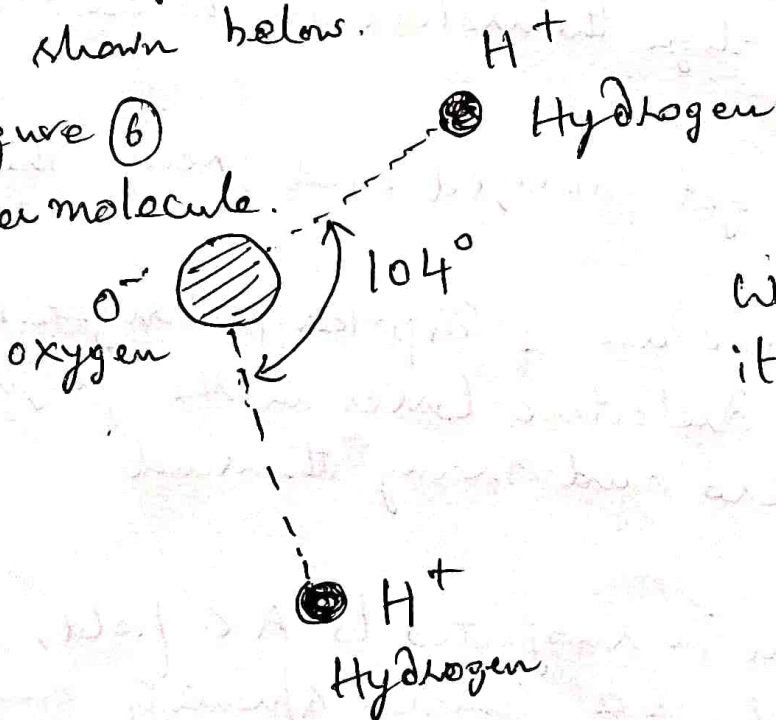 shown below.
H +
Hydrogen
ure 6
er molecule.
104°
O-
oxygen
W
it
H +
Hydrogen